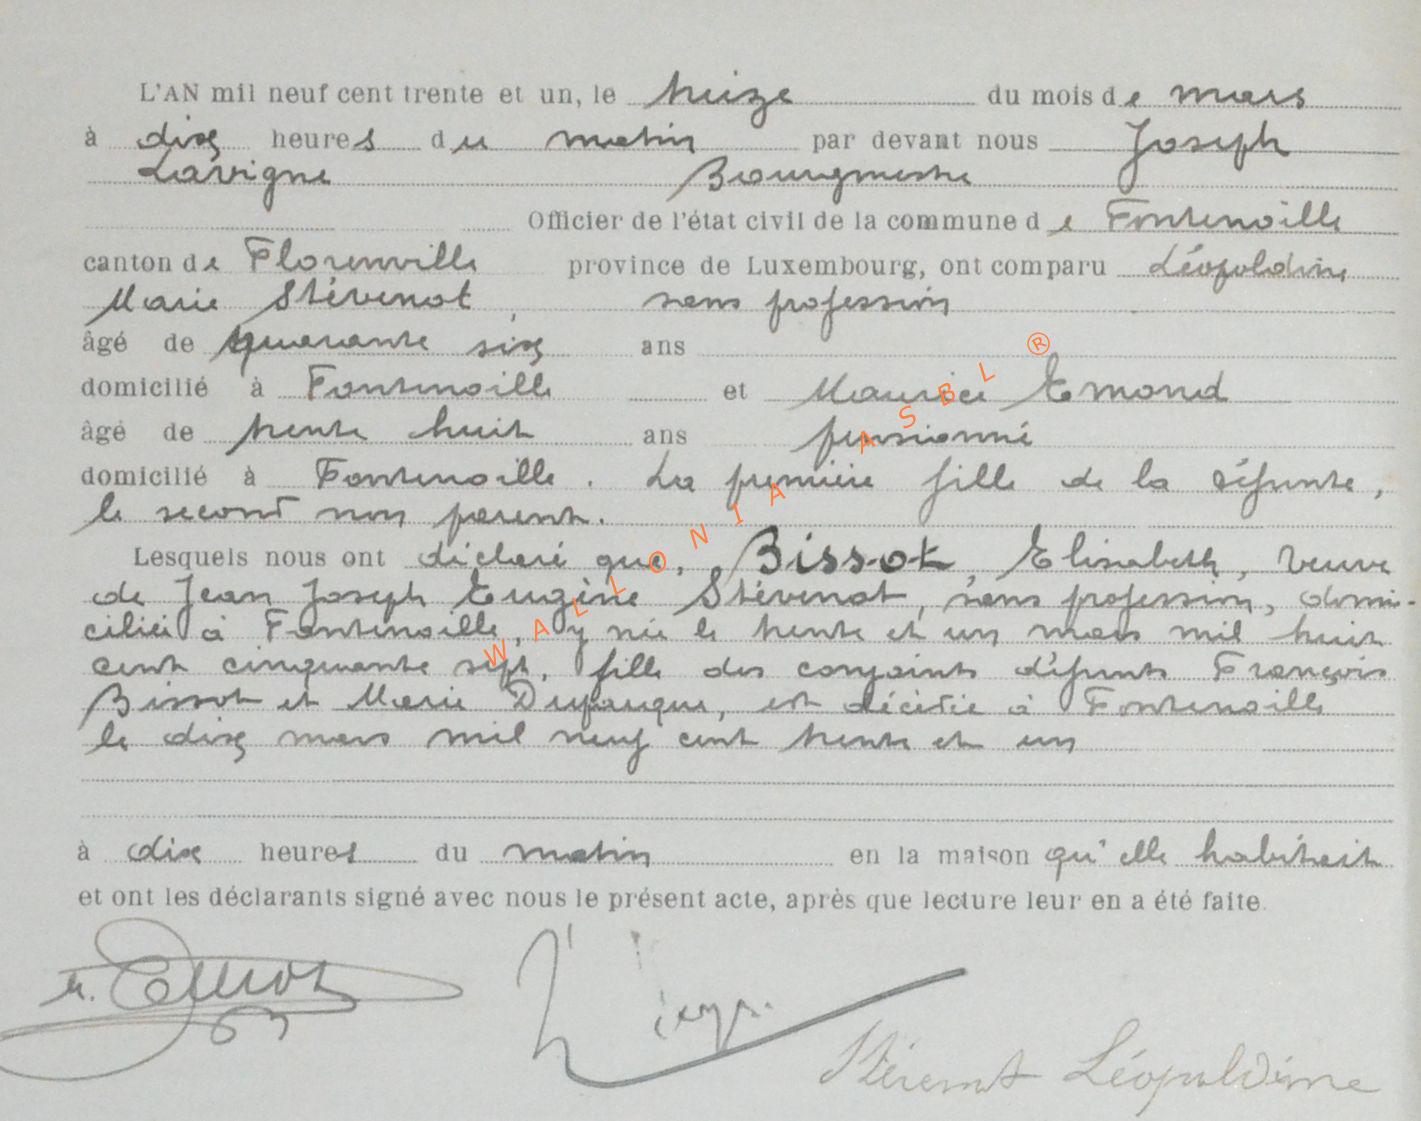 L'AN mil neuf cent trente et un, le treize du mois de mars
à dix heures du matin par devant nous Joseph
Lavigne Bourgmestre
Officier de l'état civil de la commune de Fontenoille
canton de Florenville province de Luxembourg, ont comparu Léopoldine
Marie Stévenot, sans profession
âgé de quarante six ans
domicilié à Fontenoille et Maurice Emond
âgé de trente huit ans pensionné
domicilié à Fontenoille. La première fille de la défunte,
le second non parent.
Lesquels nous ont déclaré que, Bissot, Elisabeth, veuve
de Jean Joseph Eugène Stévenot, sans profession, domi-
ciliée à Fontenoille, y née le trente et un mars mil huit
cent cinquante sept, fille des conjoints défunts François
Bissot et Marie Dufauque, est décédée à Fontenoille
le dix mars mil neuf cent trente et un
à dix heures du matin en la maison qu'elle habitait
et ont les déclarants signé avec nous le présent acte, après que lecture leur en a été faite.
M. Emond
Stévenot Léopoldine
WALLONIA ASBL ®